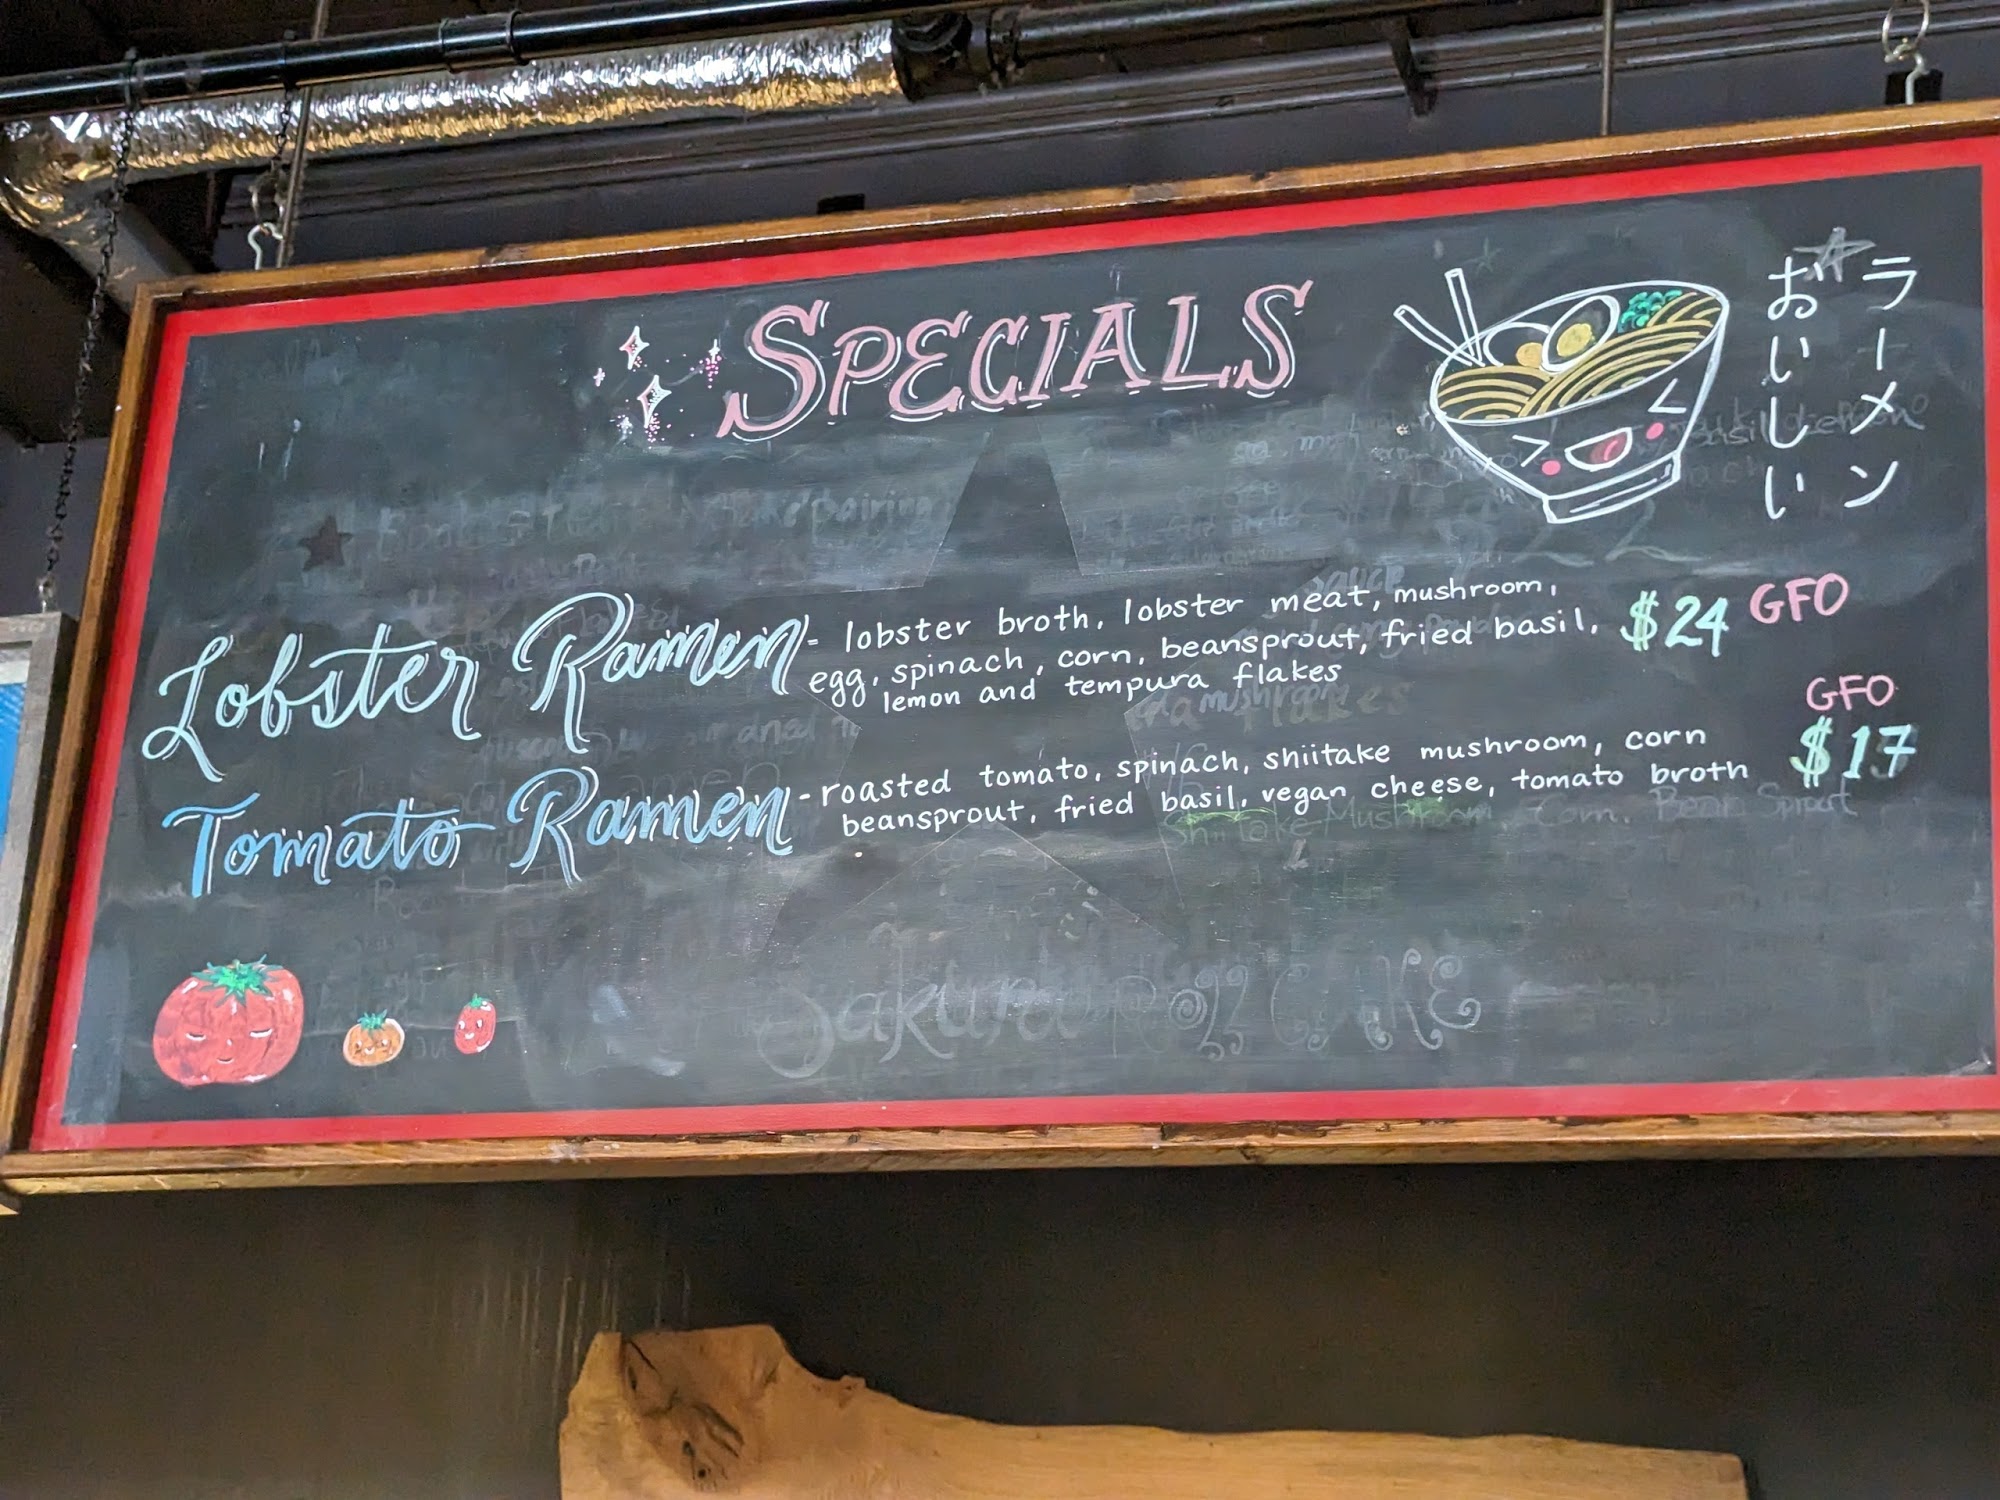 SPECIALS
ラーメン
おいしい
Lobster Ramen - lobster broth, lobster meat, mushroom,
egg, spinach, corn, beansprout, fried basil,
lemon and tempura flakes
$24 GFO
Tomato Ramen - roasted tomato, spinach, shiitake mushroom, corn
beansprout, fried basil, vegan cheese, tomato broth
GFO
$17
Shiitake Mushroom, Corn, Bean Sprout
Sakura Roll CAKE